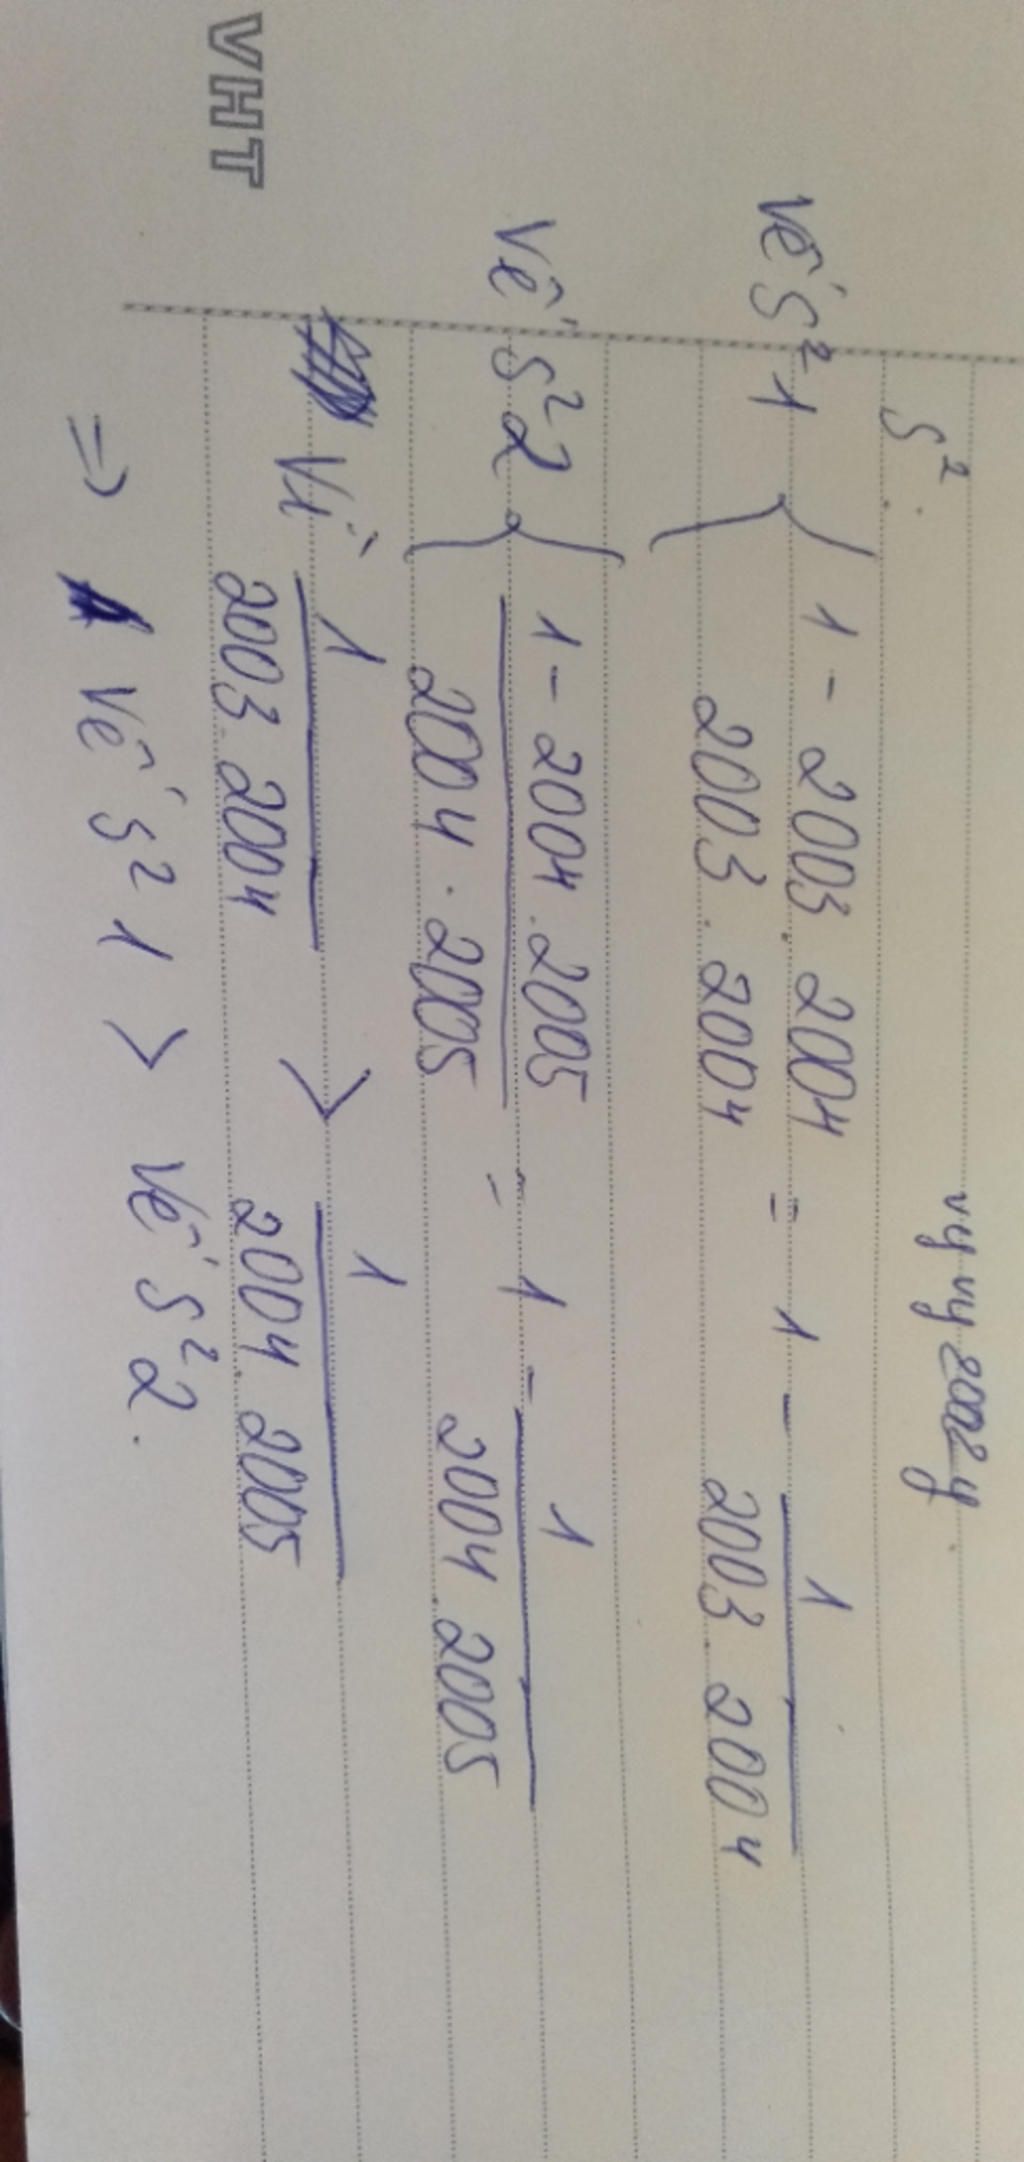 vyvy2002y.
s²:
Vế s² 1 { 1 - 2003. 2004 / 2003. 2004 = 1 - 1 / 2003. 2004
Vế s² 2 { 1 - 2004. 2005 / 2004. 2005 = 1 - 1 / 2004. 2005
Vì 1 / 2003. 2004 > 1 / 2004. 2005
=> Vế s² 1 > Vế s² 2.
VHT